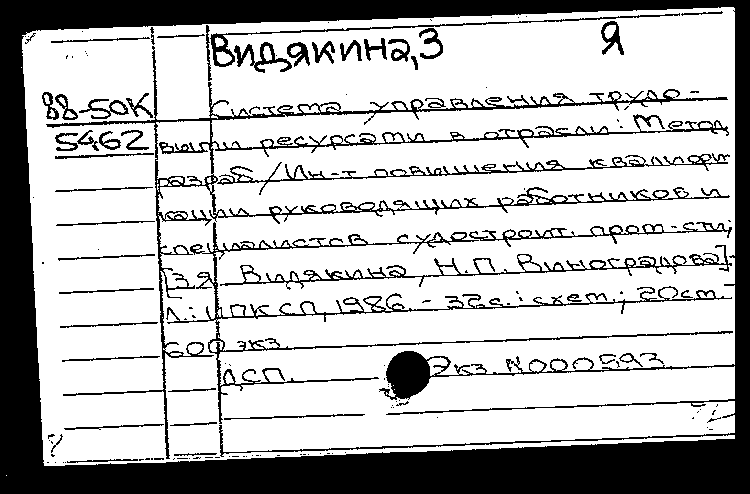 Видякина, З Я
88-50К Система управления трудо-
5462 выми ресурсами в отрасли: Метод.
разраб / Ин-т повышения квалифи
кации руководящих работников и
специалистов судостроит. пром-сти;
[З.Я Видякина, Н.П. Виноградова].-
Л.: ИПКСП, 1986. - 32с.: схем.; 20см.-
600 экз.
ДСП. Экз. N000593